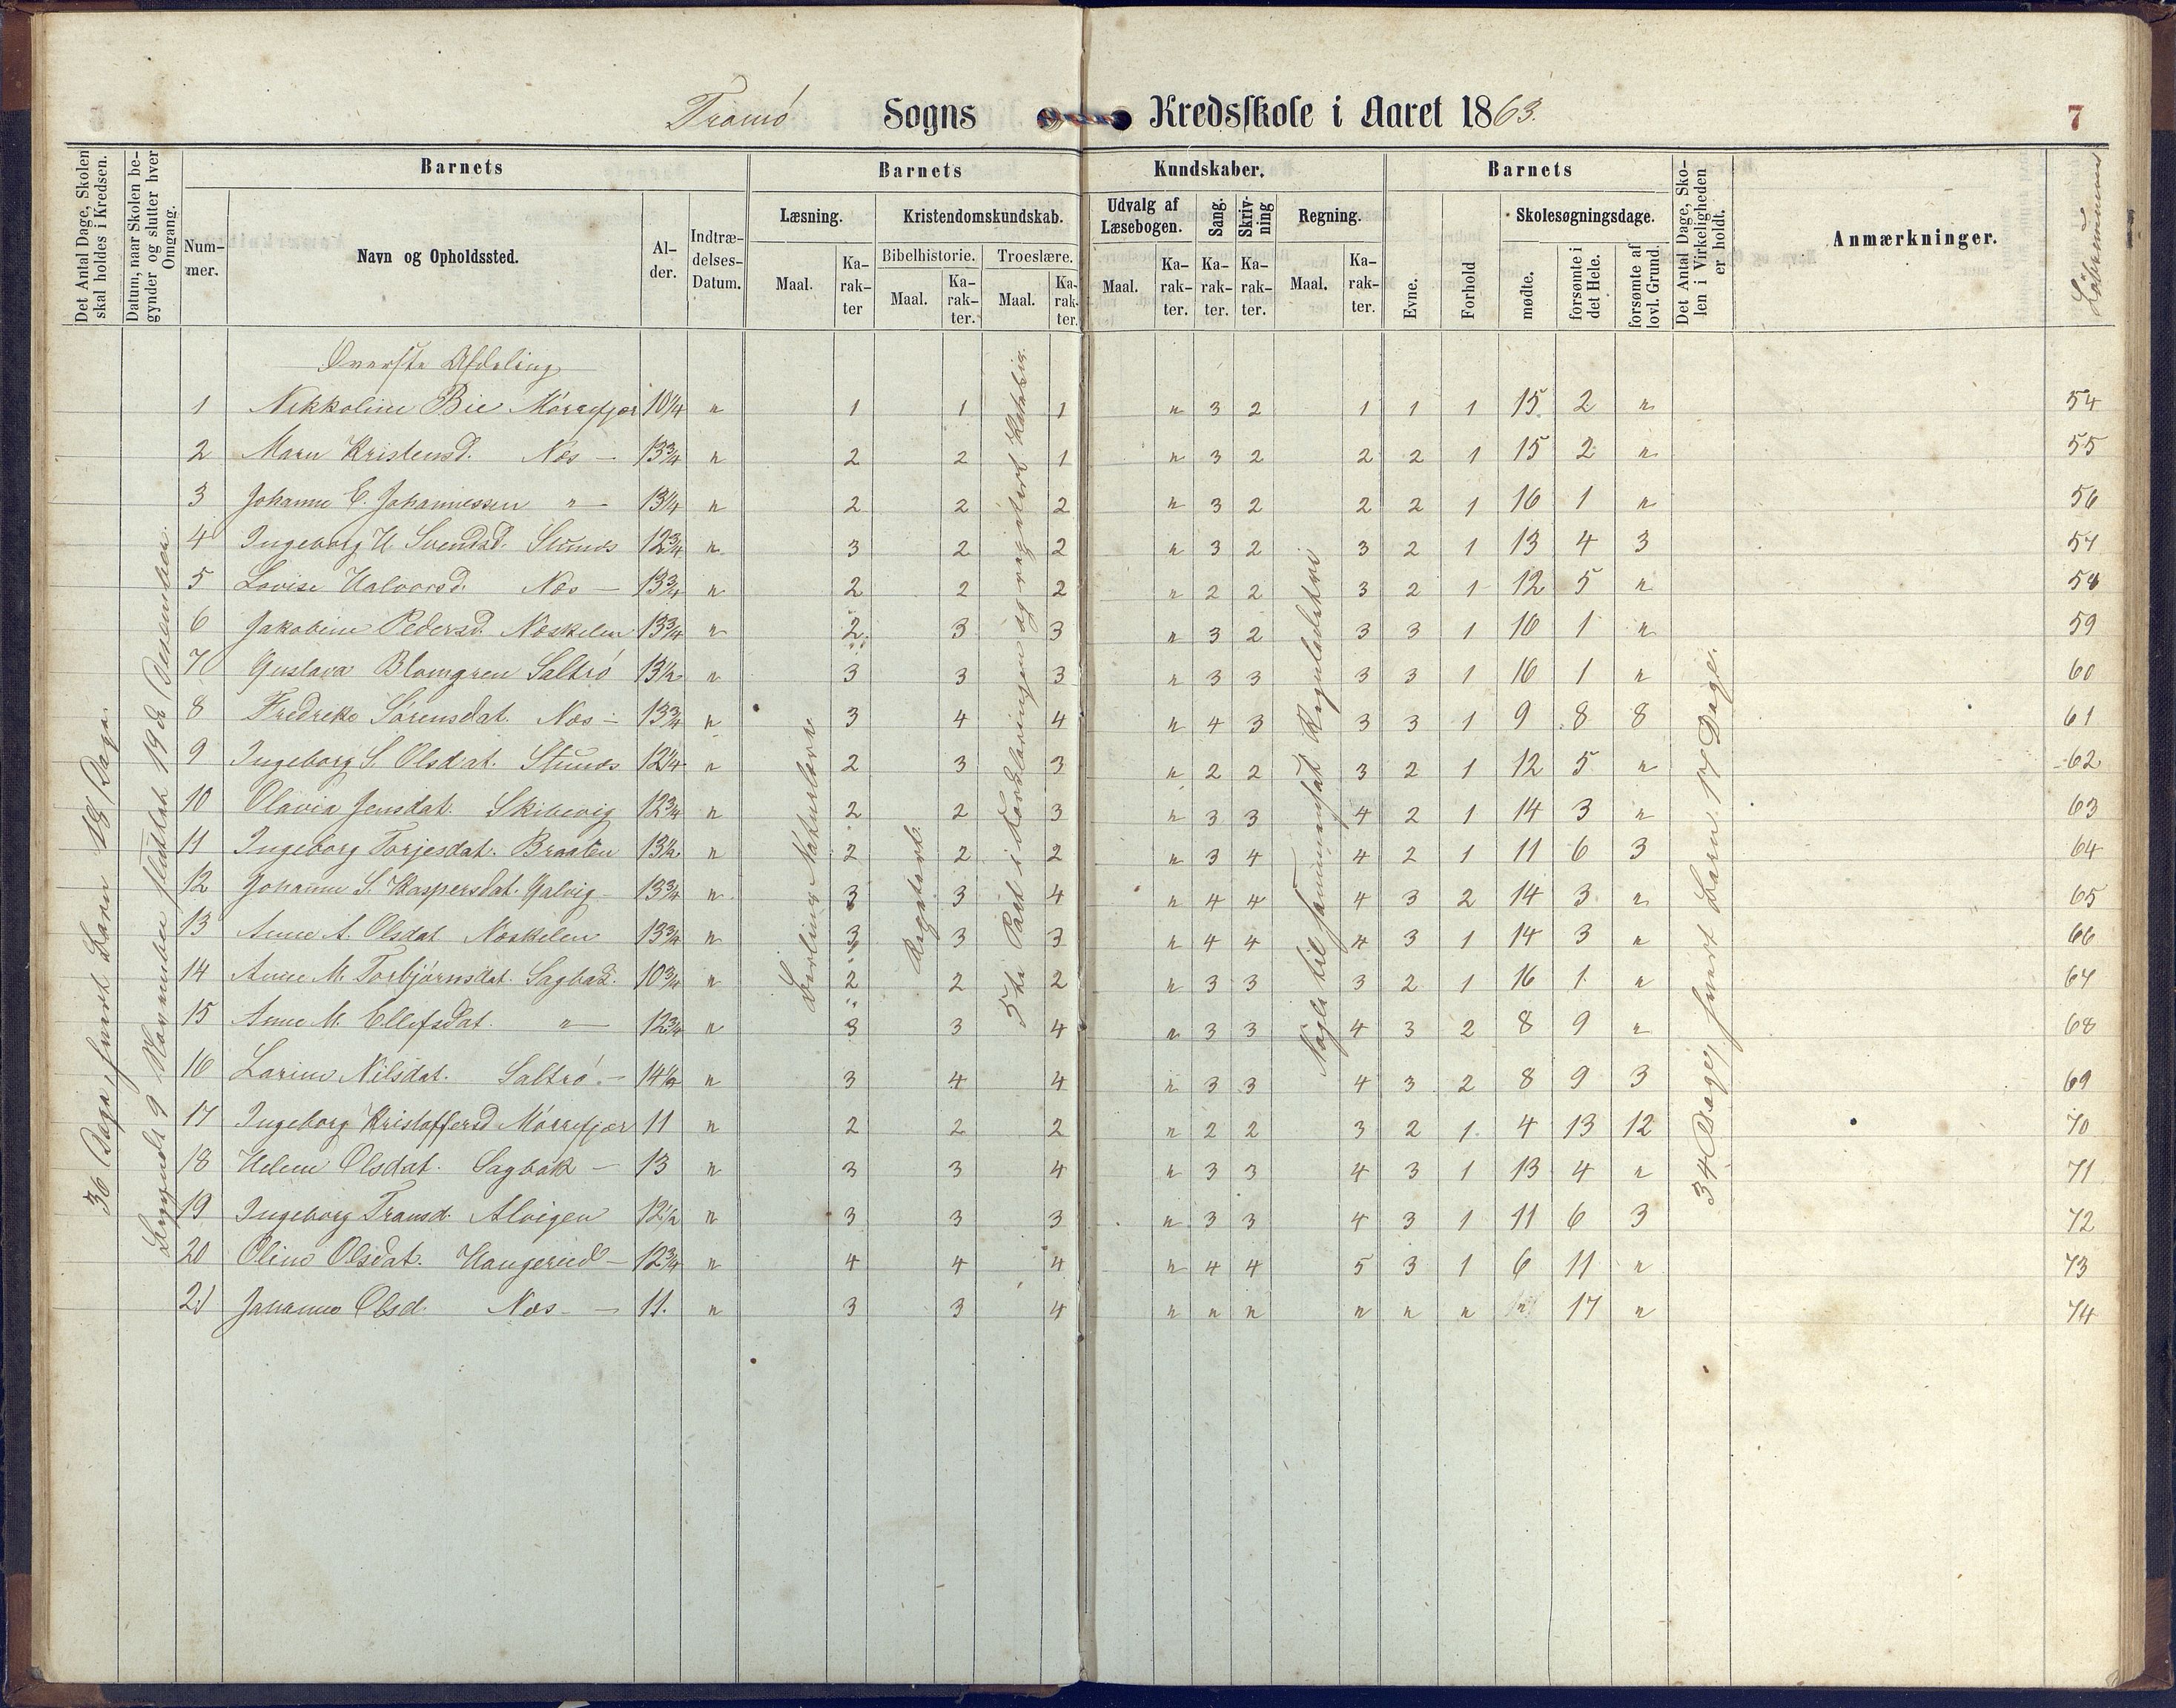 Tromö Sogns Kredsskole i Aaret 1863.
7
Det Antal Dage, Skolen skal holdes i Kredsen.
Datum, naar Skolen begynder og slutter hver Omgang.
Barnets
Barnets
Kundskaber.
Barnets
Det Antal Dage, Skolen i Virkeligheden er holdt.
Anmærkninger.
Løbenummer
Nummer.
Navn og Opholdssted.
Alder.
Indtrædelses-Datum.
Læsning.
Kristendomskundskab.
Udvalg af Læsebogen.
Sang.
Skrivning
Regning.
Evne.
Forhold
Skolesøgningsdage.
Bibelhistorie.
Troeslære.
Maal.
Karakter
Maal.
Karakter.
Maal.
Karakter.
Maal.
Karakter.
Karakter.
Karakter.
Maal.
Karakter.
mødte.
forsømte i det Hele.
forsømte af lovl. Grund.
36 Dage, hvert Barn 18 Dage.
Begyndt 9 November sluttet 19de December.
Øverste Afdeling
1 Nikkoline Bie Mørrefjær 10 1/4 " 1 1 1 " 3 2 1 1 1 15 2 " 54
2 Maren Kristensd. Næs – 13 3/4 " 2 2 1 " 3 2 2 2 1 15 2 " 55
3 Johanne E. Johannessen " – 13 1/4 " 2 2 2 " 3 2 2 2 1 16 1 " 56
4 Ingeborg H. Svendsd. Stunæs 12 3/4 " 3 2 2 " 3 2 3 2 1 13 4 3 57
5 Lovise Halvorsd. Næs – 13 3/4 " 2 2 2 " 2 2 3 2 1 12 5 " 58
6 Jakobine Pedersd. Næskilen 13 3/4 " 2 3 3 " 3 2 3 3 1 16 1 " 59
7 Gustava Blomgren Saltrö 13 1/2 " 3 3 3 " 3 3 3 3 1 16 1 " 60
8 Fredrikke Sörensdat. Næs – 13 3/4 " 3 4 4 " 4 3 3 3 1 9 8 8 61
9 Ingeborg S. Olsdat. Stunæs 12 1/4 " 2 3 3 " 2 2 3 2 1 12 5 " 62
10 Olavia Jensdat. Skibevig 12 3/4 " 2 2 3 " 3 3 4 2 1 14 3 " 63
11 Ingeborg Torjesdat. Braaten 13 1/2 " 2 2 2 " 3 4 4 2 1 11 6 3 64
12 Johanne S. Kaspersdat. Galvig – 13 3/4 " 3 3 4 " 4 4 4 3 2 14 3 " 65
13 Anne A. Olsdat Næskilen 13 3/4 " 3 3 3 " 4 4 4 3 1 14 3 " 66
14 Anne M. Torbjörnsdat. Sagbak. 10 3/4 " 2 2 2 " 3 3 3 2 1 16 1 " 67
15 Anne M. Ellefsdat. " – 12 3/4 " 3 3 4 " 3 3 4 3 2 8 9 " 68
16 Larine Nilsdat. Saltrö. – 14 1/2 " 3 4 4 " 3 3 4 3 2 8 9 3 69
17 Ingeborg Kristoffersd Mörrefjær 11 " 2 2 2 " 2 2 3 2 1 4 13 12 70
18 Helene Olsdat. Sagbak – 13 " 3 3 4 " 3 3 4 3 1 13 4 " 71
19 Ingeborg Tramsd. Alvigen 12 1/2 " 3 3 3 " 3 3 4 3 1 11 6 3 72
20 Oline Olsdat. Haugerud – 12 3/4 " 4 4 4 " 4 4 5 3 1 6 11 " 73
21 Johanne Olsd. Næs – 11. " 3 3 4 " " " " " " " 17 " 74
Berlins Naturlære
5te Part i Forklaringen og repeteret Katekis.
Nogle til sammensat Reguladetri
34 Dage, hvert Barn 17 Dage.